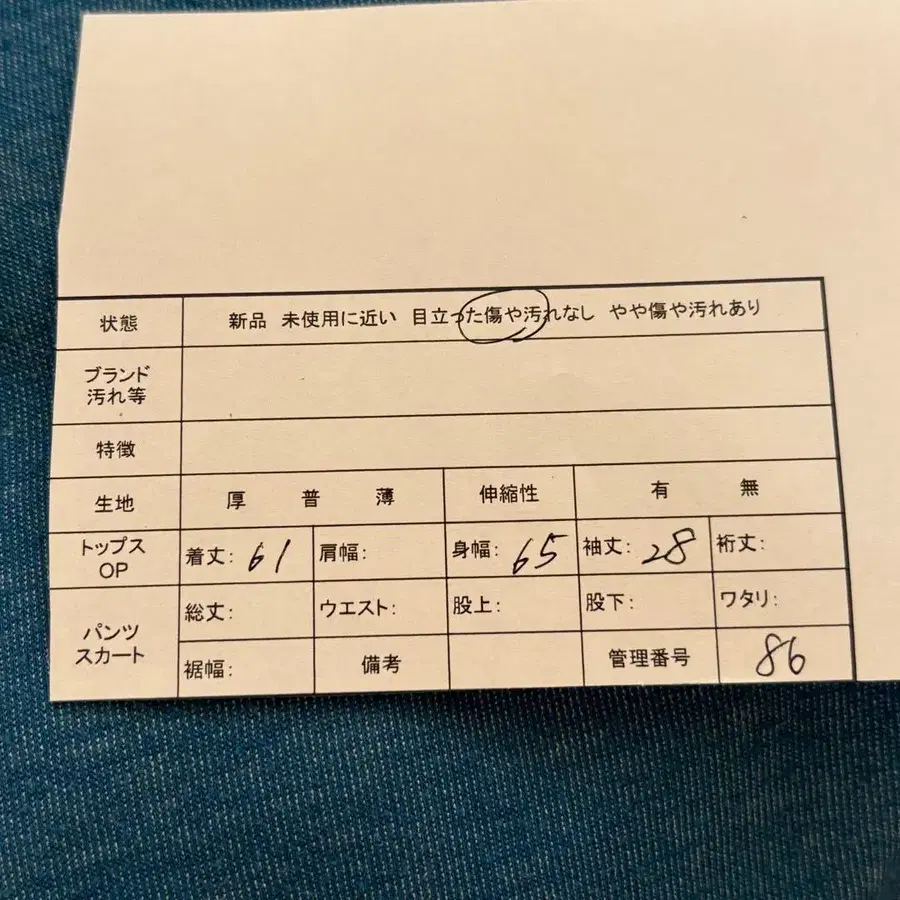 状態 新品 未使用に近い 目立った傷や汚れなし やや傷や汚れあり
ブランド
汚れ等
特徴
生地 厚 普 薄 伸縮性 有 無
トップス
OP
着丈: 61 肩幅: 身幅: 65 袖丈: 28 裄丈:
パンツ
スカート
総丈: ウエスト: 股上: 股下: ワタリ:
裾幅: 備考 管理番号 86